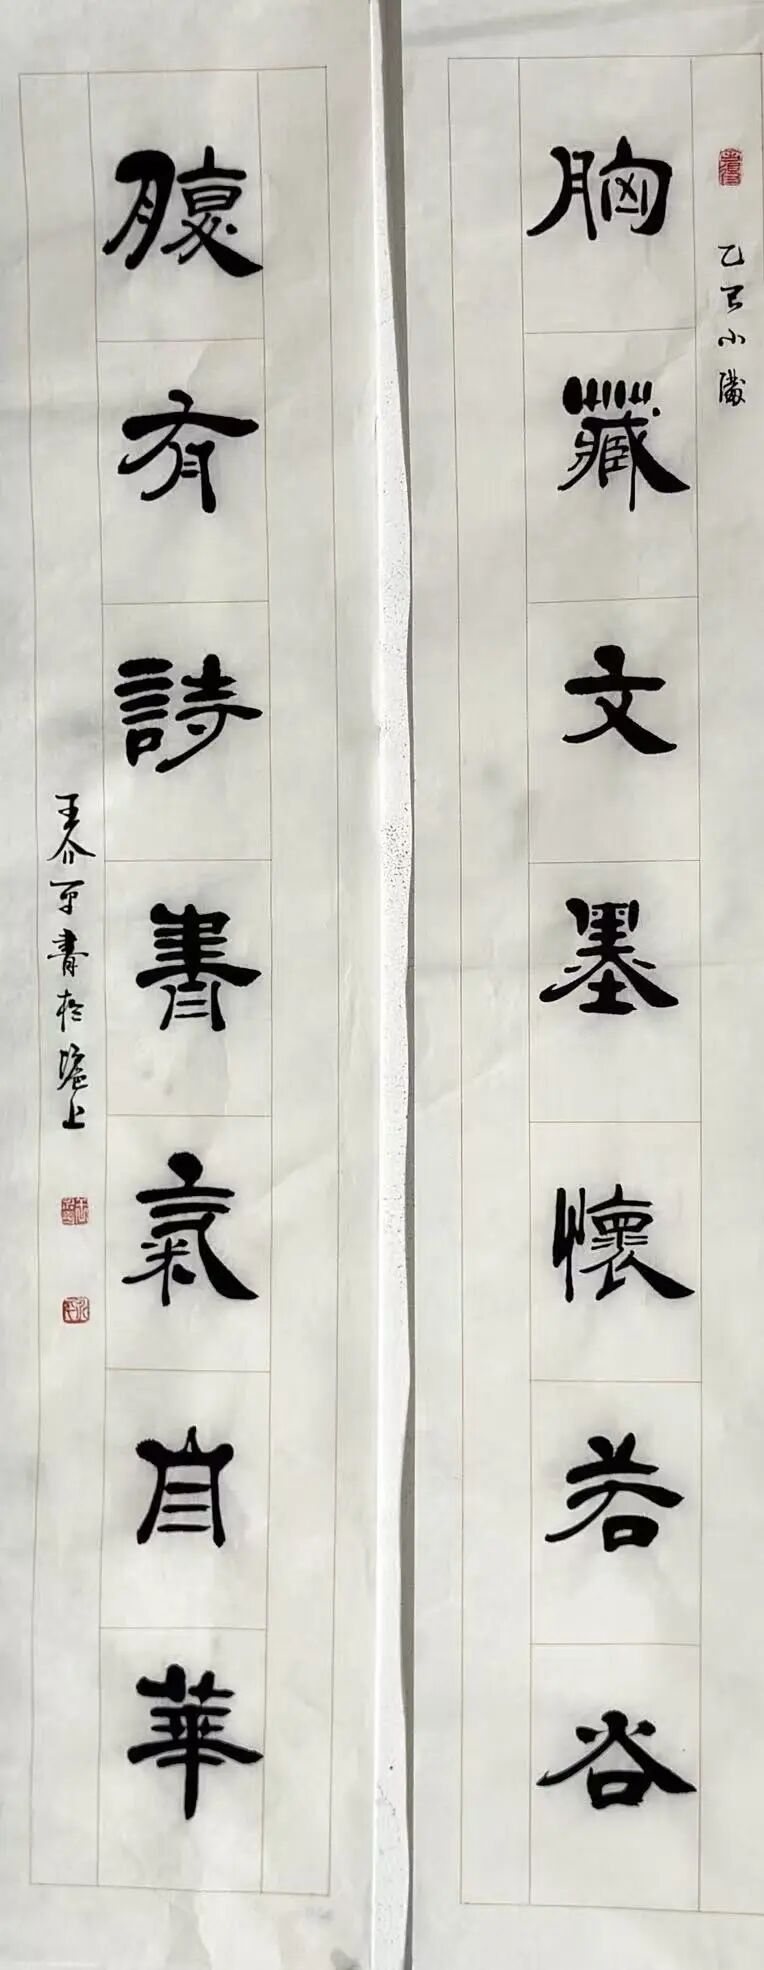 乙巳小满
胸藏文墨懷若谷
腹有詩書氣自華
王介平書於滬上